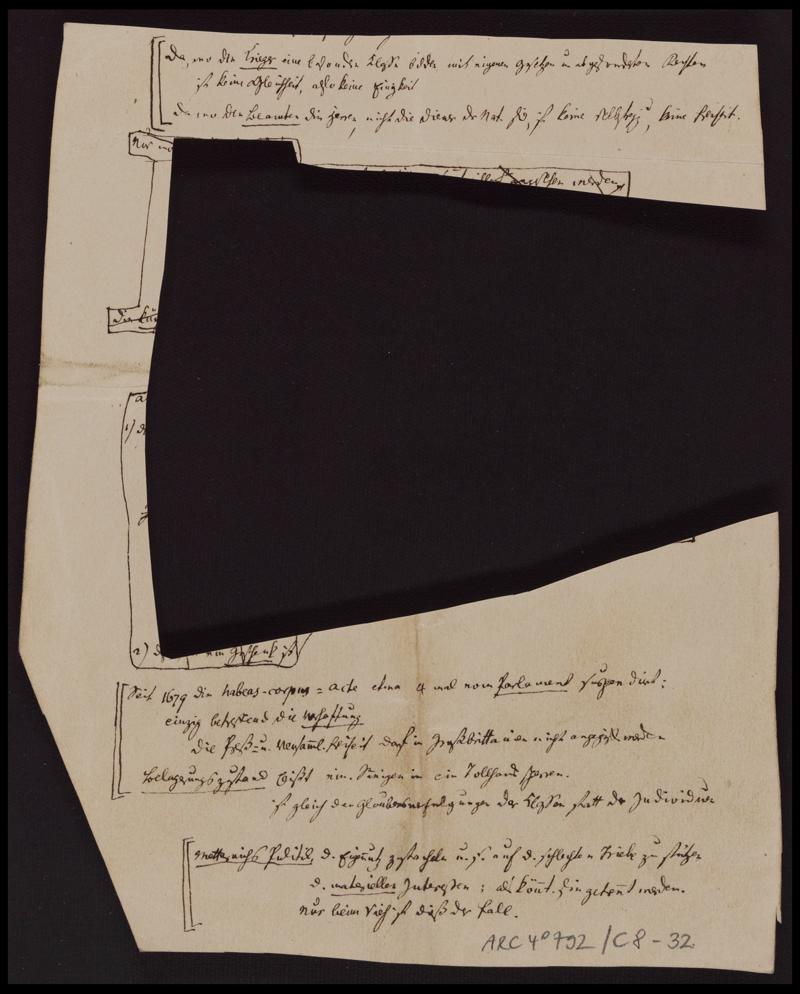 Da, wo die Krieger eine besondere Classe bilden mit eigenen Gesetzen u. abgesonderten Rechten
ist keine Gleichheit, also keine Einigkeit
da, wo die Beamten die Herren, nicht die Diener der Nat. sind, ist keine, keine Freiheit.
Nur wo
angesehen werden
die
a
1) d
2) d ein Geschenk ist
Seit 1679 die habeas-corpus=acte etwa 9 mal vom Parlament suspendirt:
einzig betreffend die Verhaftung
die Preß= u. Versamml. freiheit darf in Großbrittanien nicht angegriffen werden
Belagerungszustand heißt ein. Einigen in ein Tollhaus sperren.
ist gleich den Glaubensverfolgungen der Classen statt der Individuen
Metternichs Politik, d. Eigennutz zu stacheln u. s. auf d. schlechten Triebe zu stützen
d. materiellen Interessen; als könnt. sie getrennt werden.
Nur beim Vieh ist dieß der Fall.
ARC 4° 792 / C8-32